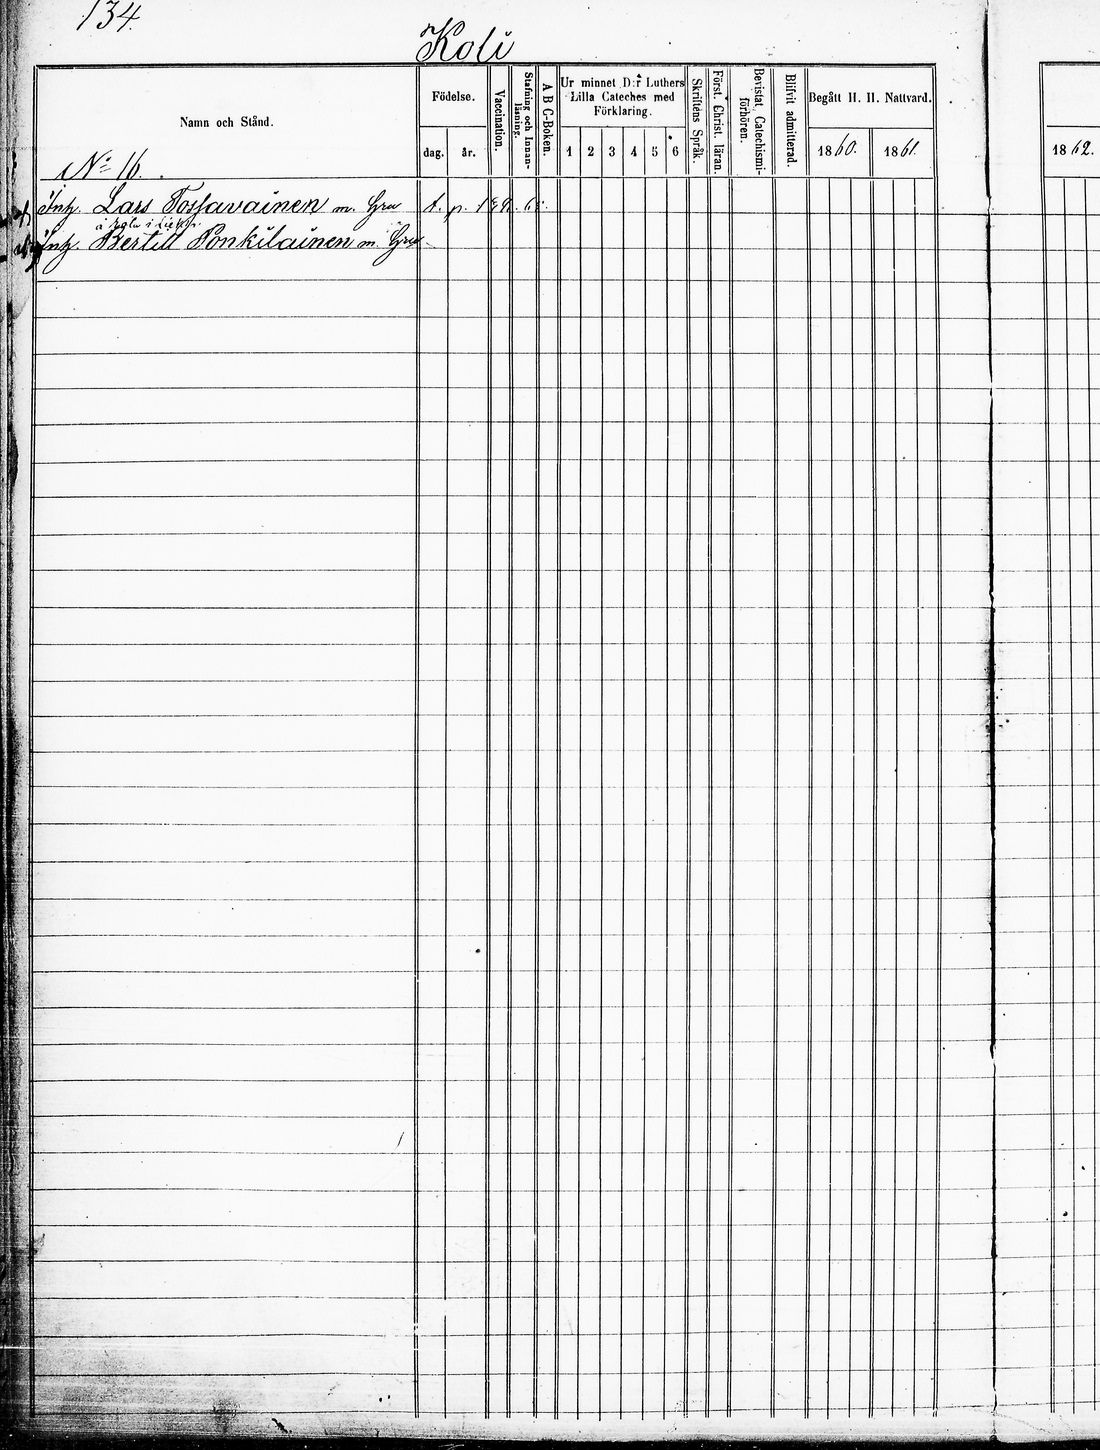 134.
Koli
Namn och Stånd.
Födelse.
dag. år.
Vaccination.
Stafning och Innan-
läsning.
A B C-Boken.
Ur minnet D:r Luthers
Lilla Cateches med
Förklaring.
1 2 3 4 5 6
Skriftens Språk.
Först. Christ. läran.
Bevistat Catechismi-
förhören.
Blifvit admitterad.
Begått H. H. Nattvard.
1860. 1861.
1862.
No 16.
Inh. Lars Tossavainen m. Gru t. p. 199.
Inh. Bertill Ponkilainen m. Gru